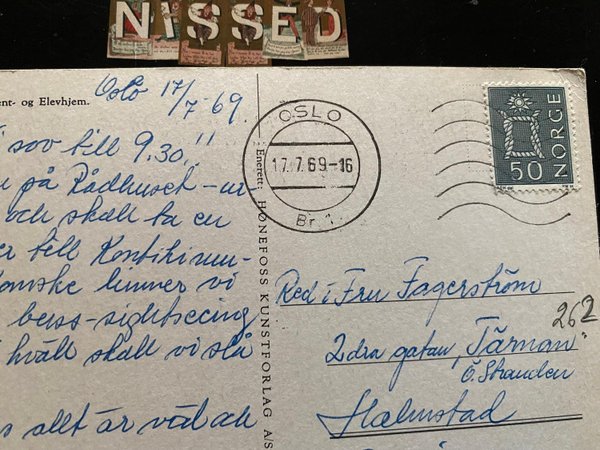 NISSED
ent- og Elevhjem.
Oslo 17/7 69.
sov till 9.30,"
på Rådhuset-ur
och skall ta en
er till Kontikimu-
kanske hinner vi
buss-sightseeing
kväll skall vi stå
allt är väl och
Enerett: HØNEFOSS KUNSTFORLAG A/S
OSLO
17.7.69-16
Br. 1.
50
NORGE
Red i Fru Fagerström
2dra gatan, Tärnan"
262
Ö. Stranden
Halmstad